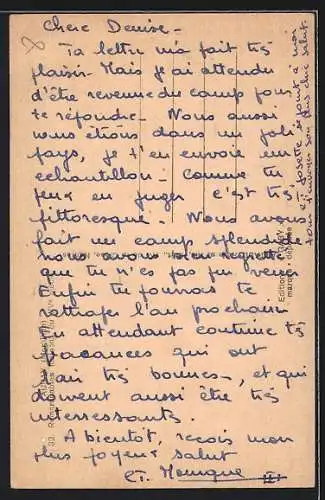 Chere Denise -
Ta lettre m'a fait très
plaisir - Mais j'ai attendu
d'être revenue du camp pour
te répondre - Nous aussi
nous étions dans un joli
pays, je t'en envoie un
echantillon - Comme tu
peux en juger c'est très
pittoresque. Nous avons
fait un camp splendide
nous avons bien regretté
que tu n'es pas pu venir
Enfin tu pourras te
rattraper l'an prochain
En attendant continue tes
vacances qui ont
l'air très bonnes - et qui
doivent aussi être très
interessants.
A bientôt, reçois mon
plus joyeux salut
Ct. Monique
Ct. Josette se joint à moi
pour t'envoyer son plus chic salut.
Editions
marque déposée